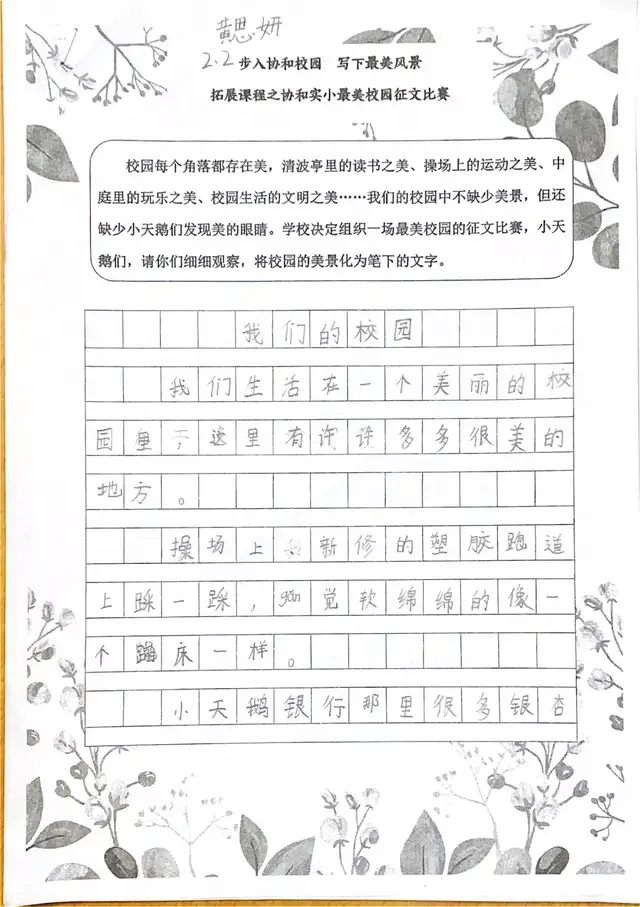 黄思妍
2.2
步入协和校园 写下最美风景
拓展课程之协和实小最美校园征文比赛
校园每个角落都存在美，清波亭里的读书之美、操场上的运动之美、中
庭里的玩乐之美、校园生活的文明之美……我们的校园中不缺少美景，但还
缺少小天鹅们发现美的眼睛。学校决定组织一场最美校园的征文比赛，小天
鹅们，请你们细细观察，将校园的美景化为笔下的文字。
我们的校园
我们生活在一个美丽的校
园里，这里有许许多多很美的
地方。
操场上新修的塑胶跑道
上踩一踩，gǎn觉软绵绵的像一
个蹦床一样。
小天鹅银行那里很多银杏